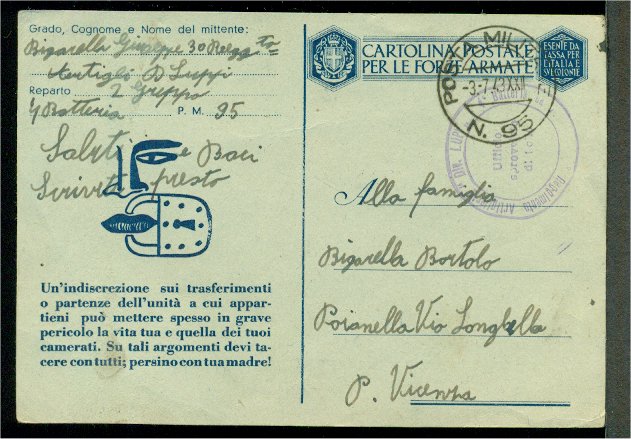 Grado, Cognome e Nome del mittente:
Bigarella Giuseppe 30 Regg to
Reparto 2 Gruppo
4 Batteria P. M. 95
Saluti e Baci
Scrivete presto
Un'indiscrezione sui trasferimenti
o partenze dell'unità a cui appar-
tieni può mettere spesso in grave
pericolo la vita tua e quella dei tuoi
camerati. Su tali argomenti devi ta-
cere con tutti; persino con tua madre!
CARTOLINA POSTALE
PER LE FORZE ARMATE
ESENTE DA
TASSA PER
L'ITALIA E
SUE COLONIE
POSTA MILITARE
-3-7-43 XXI
N. 95
Alla famiglia
Bigarella Bortolo
Poianella Via Longhella
P. Vicenza